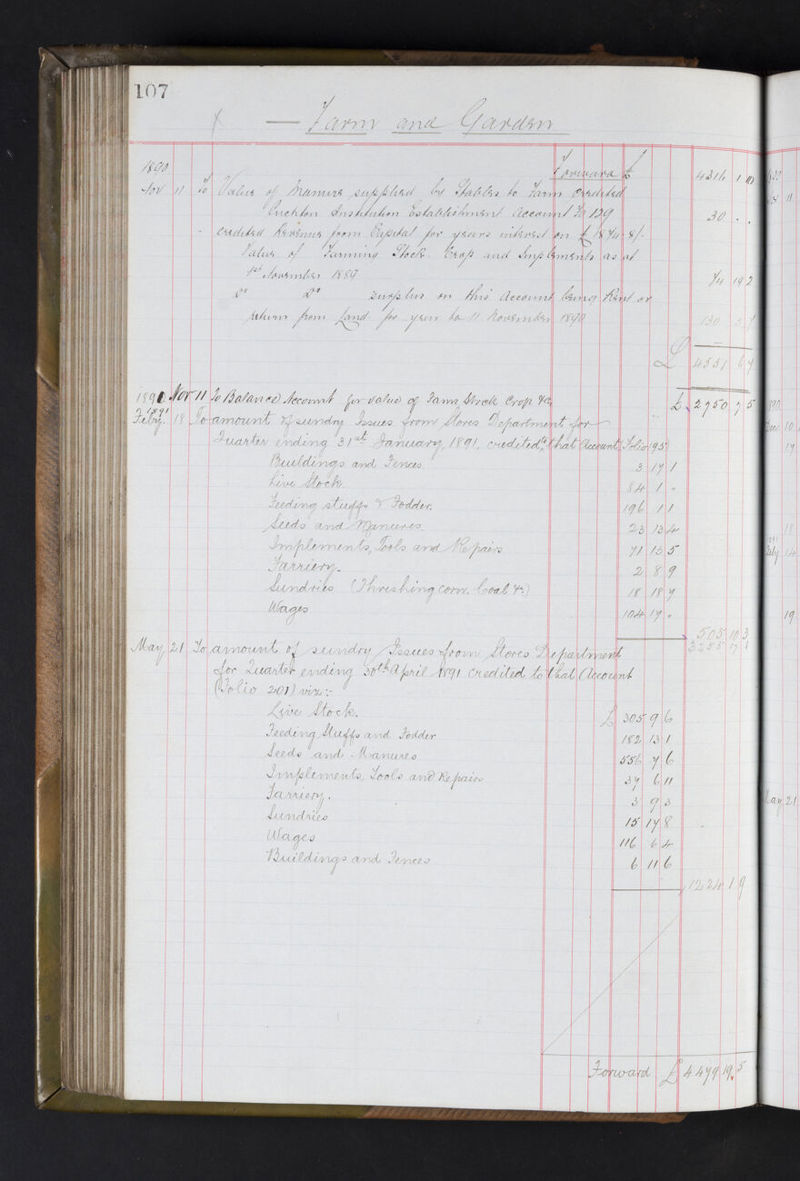 107
— Farm and Garden
1890 Forward £ 4316 1 10
Nov 11 To Value of Manure supplied by Stables to Farm credited
Crichton Institution Establishment Account Fo 129 30 . .
credited Revenue from Capital for years interest on £1874.8/-
Value of Farming Stock Crop and Implements as at
1st November 1889 74 19 2
Do Do surplus on this Account being Rent or
return from Land for year to 11 November 1890 130 5 7
£ 4551 6 7
1890 Nov 11 To Balance Account for value of Farm Stock Crop &c £ 2750 7 5
1891
Feby. 18 To amount of sundry Issues from Stores Department for
Quarter ending 31st January, 1891, credited that Account, Folio 195
Buildings and Fences 3 17 1
Live Stock 84 1 -
Feeding stuffs & Fodder. 196 1 1
Seeds and Manures 23 13 4
Implements, Tools and Repairs 71 13 5
Farriery. 2 8 9
Sundries (Threshing corn. Coal &c) 18 18 7
Wages 104 17 -
505 10 3
3255 17 8
May 21 To amount of sundry Issues from Stores Department
for Quarter ending 30th April 1891 credited to that Account
(Folio 201) viz:-
Live Stock. £ 305 9 6
Feeding Stuffs and Fodder 182 13 1
Seeds and Manures 556 7 6
Implements, Tools and Repairs 37 6 11
Farriery. 3 9 3
Sundries 15 17 8
Wages 116 6 4
Buildings and Fences 6 11 6
1224 1 9
Forward £ 4479 19 5